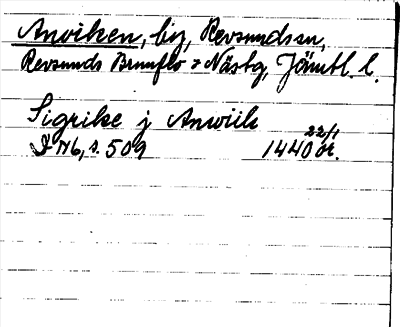 Anviken, by, Revsunds sn,
Revsunds Brunflo o Näsbg, Jämtl. l.
Sigrike j Anwiik
22/1
s. 509 1440 or.